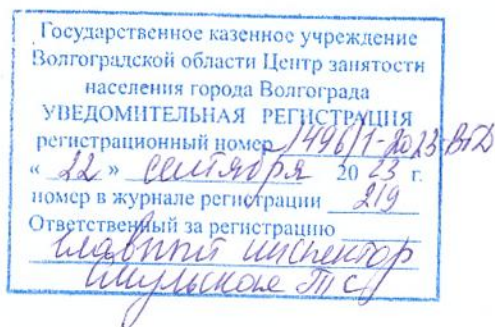 Государственное казенное учреждение
Волгоградской области Центр занятости
населения города Волгограда
УВЕДОМИТЕЛЬНАЯ РЕГИСТРАЦИЯ
регистрационный номер 1496/1-2023-ВГД
« 22 » сентября 20 23 г.
номер в журнале регистрации 219
Ответственный за регистрацию
главный инспектор
Смульская Т С